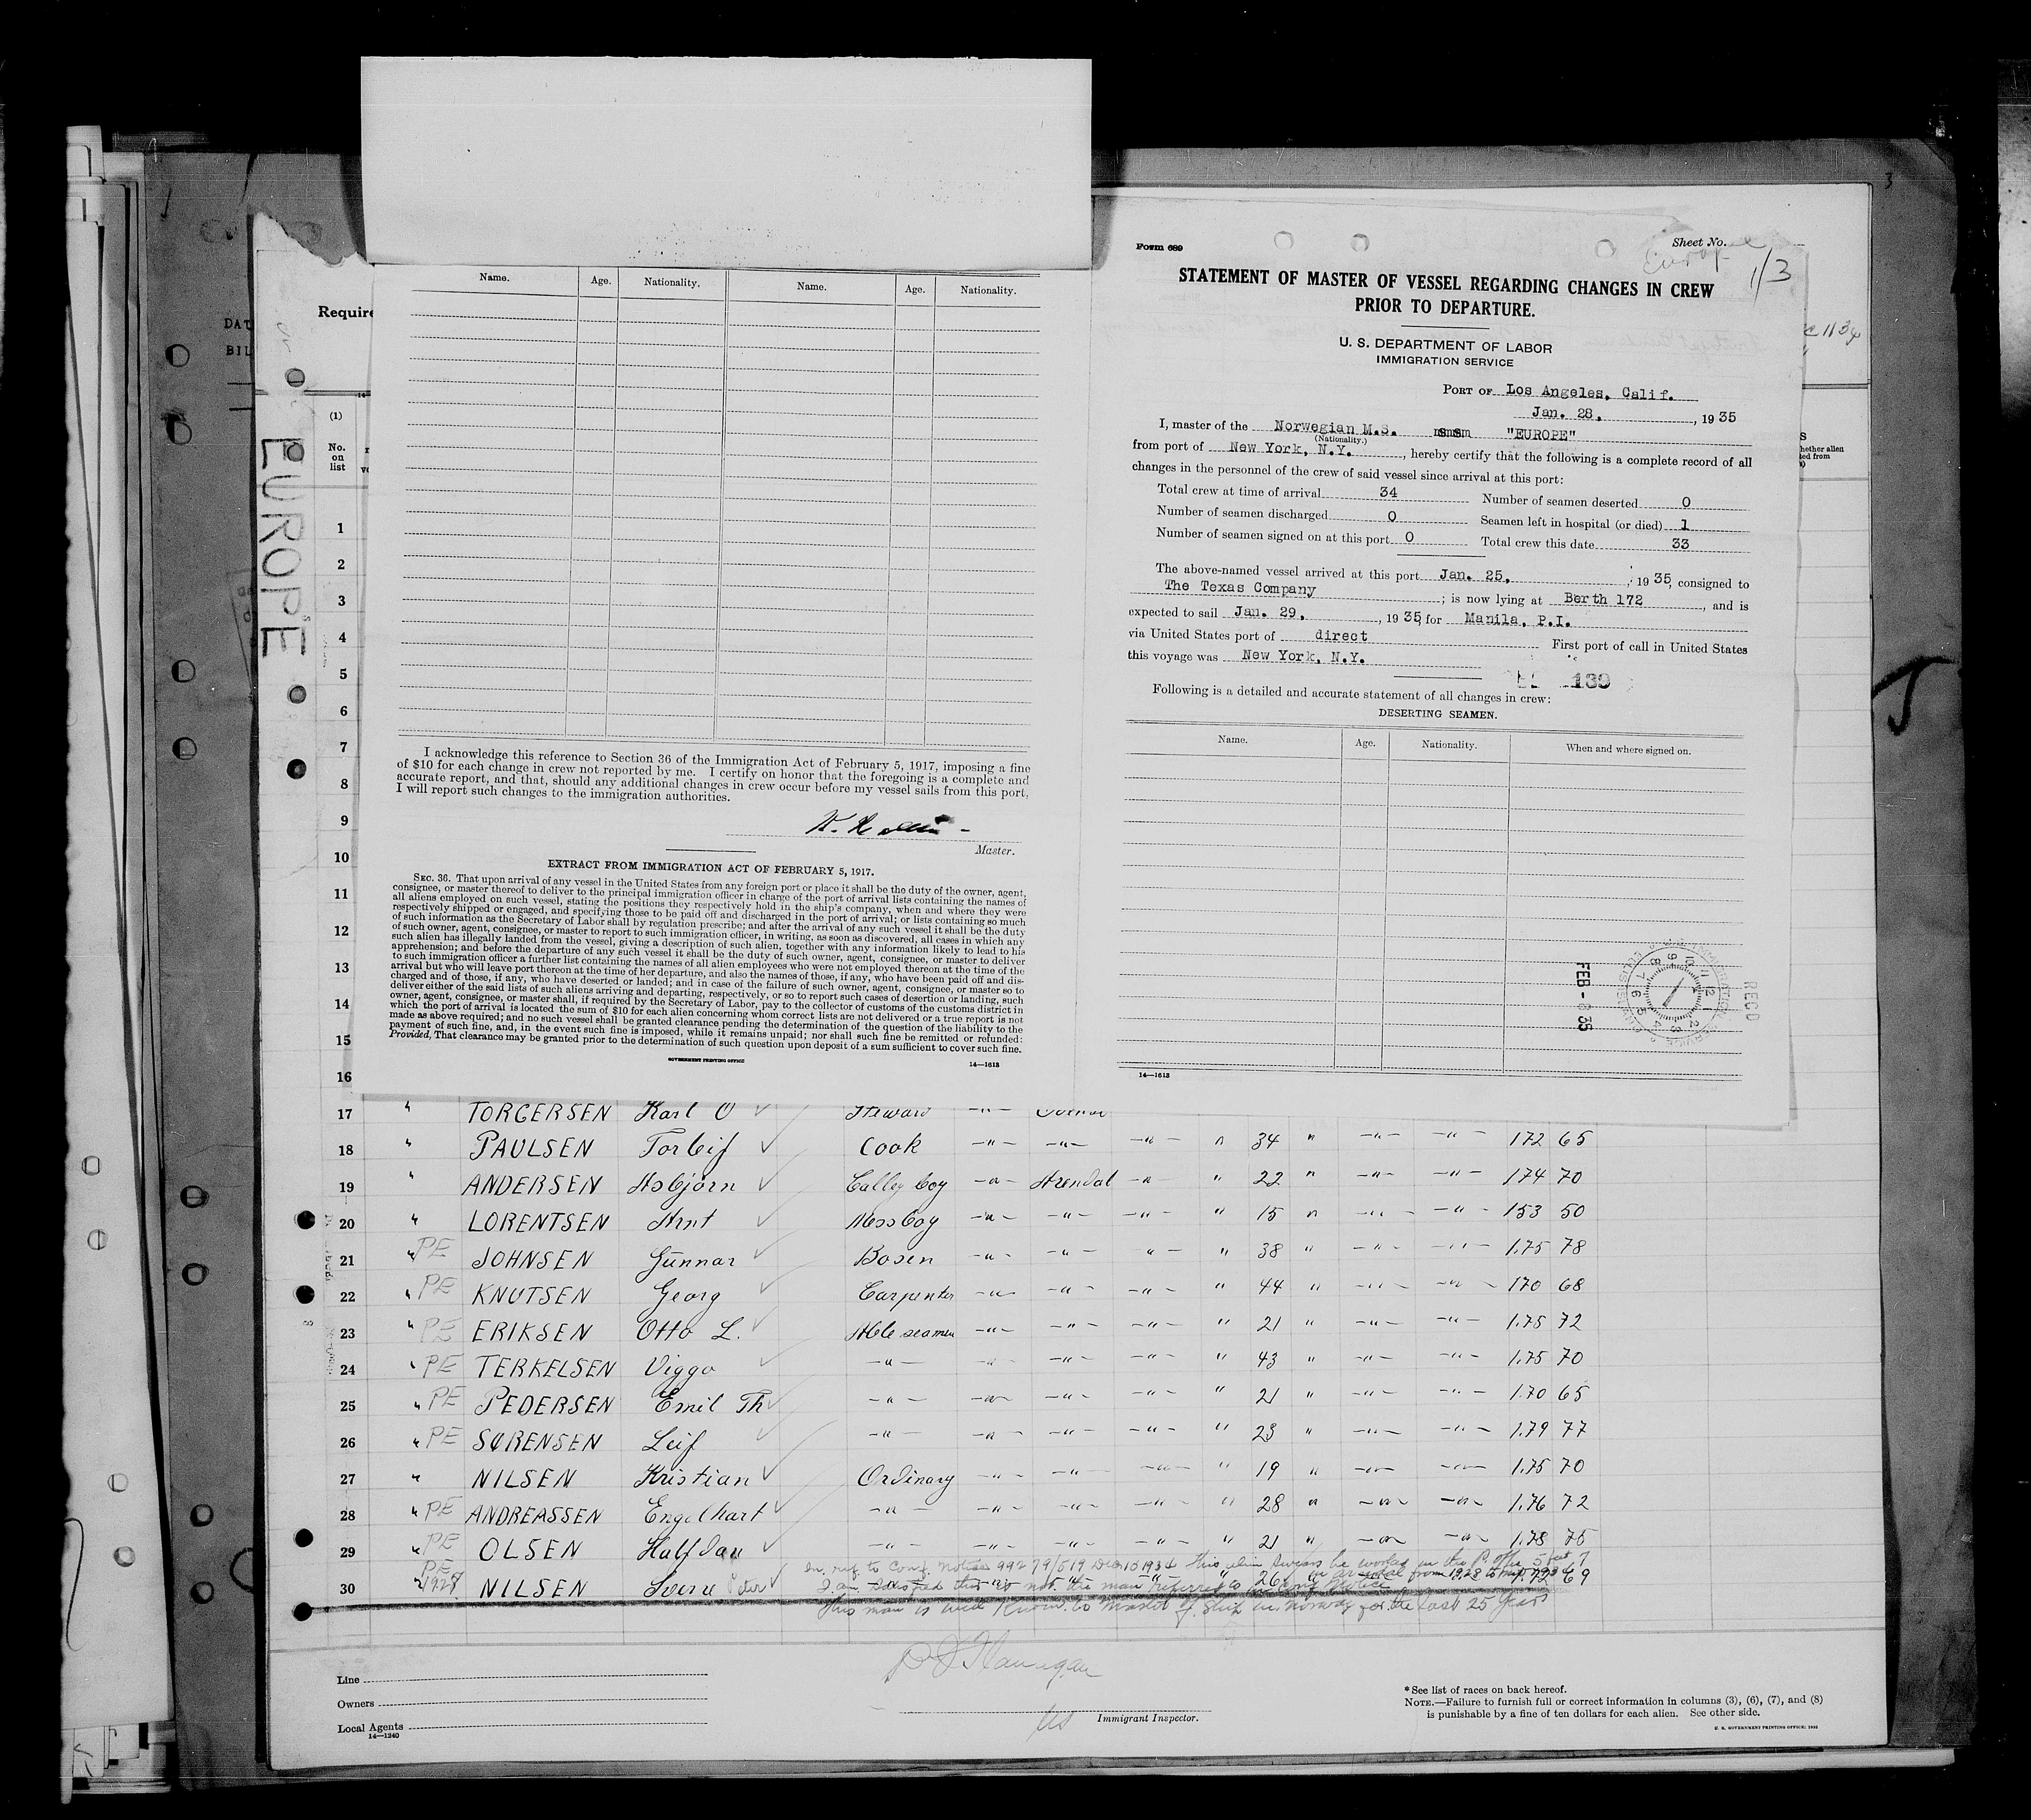 Name. Age. Nationality. Name. Age. Nationality.
I acknowledge this reference to Section 36 of the Immigration Act of February 5, 1917, imposing a fine
of $10 for each change in crew not reported by me. I certify on honor that the foregoing is a complete and
accurate report, and that, should any additional changes in crew occur before my vessel sails from this port,
I will report such changes to the immigration authorities.
Master.
EXTRACT FROM IMMIGRATION ACT OF FEBRUARY 5, 1917.
SEC. 36. That upon arrival of any vessel in the United States from any foreign port or place it shall be the duty of the owner, agent,
consignee, or master thereof to deliver to the principal immigration officer in charge of the port of arrival lists containing the names of
all aliens employed on such vessel, stating the positions they respectively hold in the ship's company, when and where they were
respectively shipped or engaged, and specifying those to be paid off and discharged in the port of arrival; or lists containing so much
of such information as the Secretary of Labor shall by regulation prescribe; and after the arrival of any such vessel it shall be the duty
of such owner, agent, consignee, or master to report to such immigration officer, in writing, as soon as discovered, all cases in which any
such alien has illegally landed from the vessel, giving a description of such alien, together with any information likely to lead to his
apprehension; and before the departure of any such vessel it shall be the duty of such owner, agent, consignee, or master to deliver
to such immigration officer a further list containing the names of all alien employees who were not employed thereon at the time of the
arrival but who will leave port thereon at the time of her departure, and also the names of those, if any, who have been paid off and dis-
charged and of those, if any, who have deserted or landed; and in case of the failure of such owner, agent, consignee, or master so to
deliver either of the said lists of such aliens arriving and departing, respectively, or so to report such cases of desertion or landing, such
owner, agent, consignee, or master shall, if required by the Secretary of Labor, pay to the collector of customs of the customs district in
which the port of arrival is located the sum of $10 for each alien concerning whom correct lists are not delivered or a true report is not
made as above required; and no such vessel shall be granted clearance pending the determination of the question of the liability to the
payment of such fine, and, in the event such fine is imposed, while it remains unpaid; nor shall such fine be remitted or refunded:
Provided, That clearance may be granted prior to the determination of such question upon deposit of a sum sufficient to cover such fine.
GOVERNMENT PRINTING OFFICE 14—1613
Form 689 Sheet No.
Europe 1/3
STATEMENT OF MASTER OF VESSEL REGARDING CHANGES IN CREW
PRIOR TO DEPARTURE.
U. S. DEPARTMENT OF LABOR
IMMIGRATION SERVICE
PORT OF Los Angeles, Calif.
Jan. 28, , 1935
I, master of the Norwegian M.S. "EUROPE"
(Nationality.)
from port of New York, N.Y. , hereby certify that the following is a complete record of all
changes in the personnel of the crew of said vessel since arrival at this port:
Total crew at time of arrival 34 Number of seamen deserted 0
Number of seamen discharged 0 Seamen left in hospital (or died) 1
Number of seamen signed on at this port 0 Total crew this date 33
The above-named vessel arrived at this port Jan. 25, , 1935, consigned to
The Texas Company ; is now lying at Berth 172 , and is
expected to sail Jan. 29, , 1935, for Manila, P.I.
via United States port of direct First port of call in United States
this voyage was New York, N.Y.
130
Following is a detailed and accurate statement of all changes in crew:
DESERTING SEAMEN.
Name. Age. Nationality. When and where signed on.
FEB - 8 35
REC'D
14—1613
EUROPE
Require
DAT
BIL
(1)
No.
on
list
1
2
3
4
5
6
7
8
9
10
11
12
13
14
15
16
17 " TORGERSEN Karl O Steward
18 " PAULSEN Torleif Cook -"- -"- -"- " 34 " -"- -"- 172 65
19 " ANDERSEN Asbjørn Galley boy -"- Arendal -"- " 22 " -"- -"- 174 70
20 " LORENTSEN Arnt Messboy -"- -"- -"- " 15 " -"- -"- 153 50
21 " PE JOHNSEN Gunnar Bosen -"- -"- -"- " 38 " -"- -"- 1.75 78
22 " PE KNUTSEN Georg Carpenter -"- -"- -"- " 44 " -"- -"- 170 68
23 " PE ERIKSEN Otto L. Able seamen -"- -"- -"- " 21 " -"- -"- 1.75 72
24 " PE TERKELSEN Viggo -"- -"- -"- -"- " 43 " -"- -"- 1.75 70
25 " PE PEDERSEN Emil Th -"- -"- -"- -"- " 21 " -"- -"- 1.70 65
26 " PE SØRENSEN Leif -"- -"- -"- -"- " 23 " -"- -"- 1.79 77
27 " NILSEN Kristian Ordinary -"- -"- -"- " 19 " -"- -"- 1.75 70
28 " PE ANDREASSEN Engelhart -"- -"- -"- -"- " 28 " -"- -"- 1.76 72
29 " PE OLSEN Halfdan -"- -"- -"- -"- " 21 " -"- -"- 1.78 75
In ref. to Conf. Notice 992 79/519 Dec 10 1934 this alien swears he worked in the
30 " PE 1927 NILSEN Sverre Peter 26 1.72 69
I am satisfied this is not the man referred to
this man is well known to master of ship in Norway for the last 25 years
Line
Owners
Local Agents
14—1240
Immigrant Inspector.
*See list of races on back hereof.
NOTE.—Failure to furnish full or correct information in columns (3), (6), (7), and (8)
is punishable by a fine of ten dollars for each alien. See other side.
U. S. GOVERNMENT PRINTING OFFICE: 1932